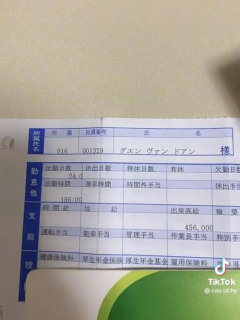 所属氏名 所 属 社員番号 氏 名
016 001329 グエン ヴァン ドアン 様
勤怠他 出勤日数 休出日数 特休日数 有休 欠勤日数
24.0
出勤時間 遅早時間 時間外手当 休出手当
186:00
支給 時間給 加給 出来高給 職
456,000
運転手当 皆率手当 管理手当 作業長手当 特別手
控 健康保険料 厚生年金保険 厚生年金基金 雇用保険料
TikTok